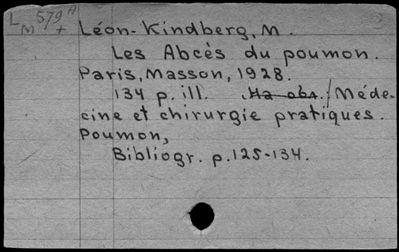 L 579 A
M +
Léon-Kindberg, M.
Les Abcès du poumon.
Paris, Masson, 1928.
134 p. ill. /Méde-
cine et chirurgie pratiques.
Poumon,
Bibliogr. p. 125-134.